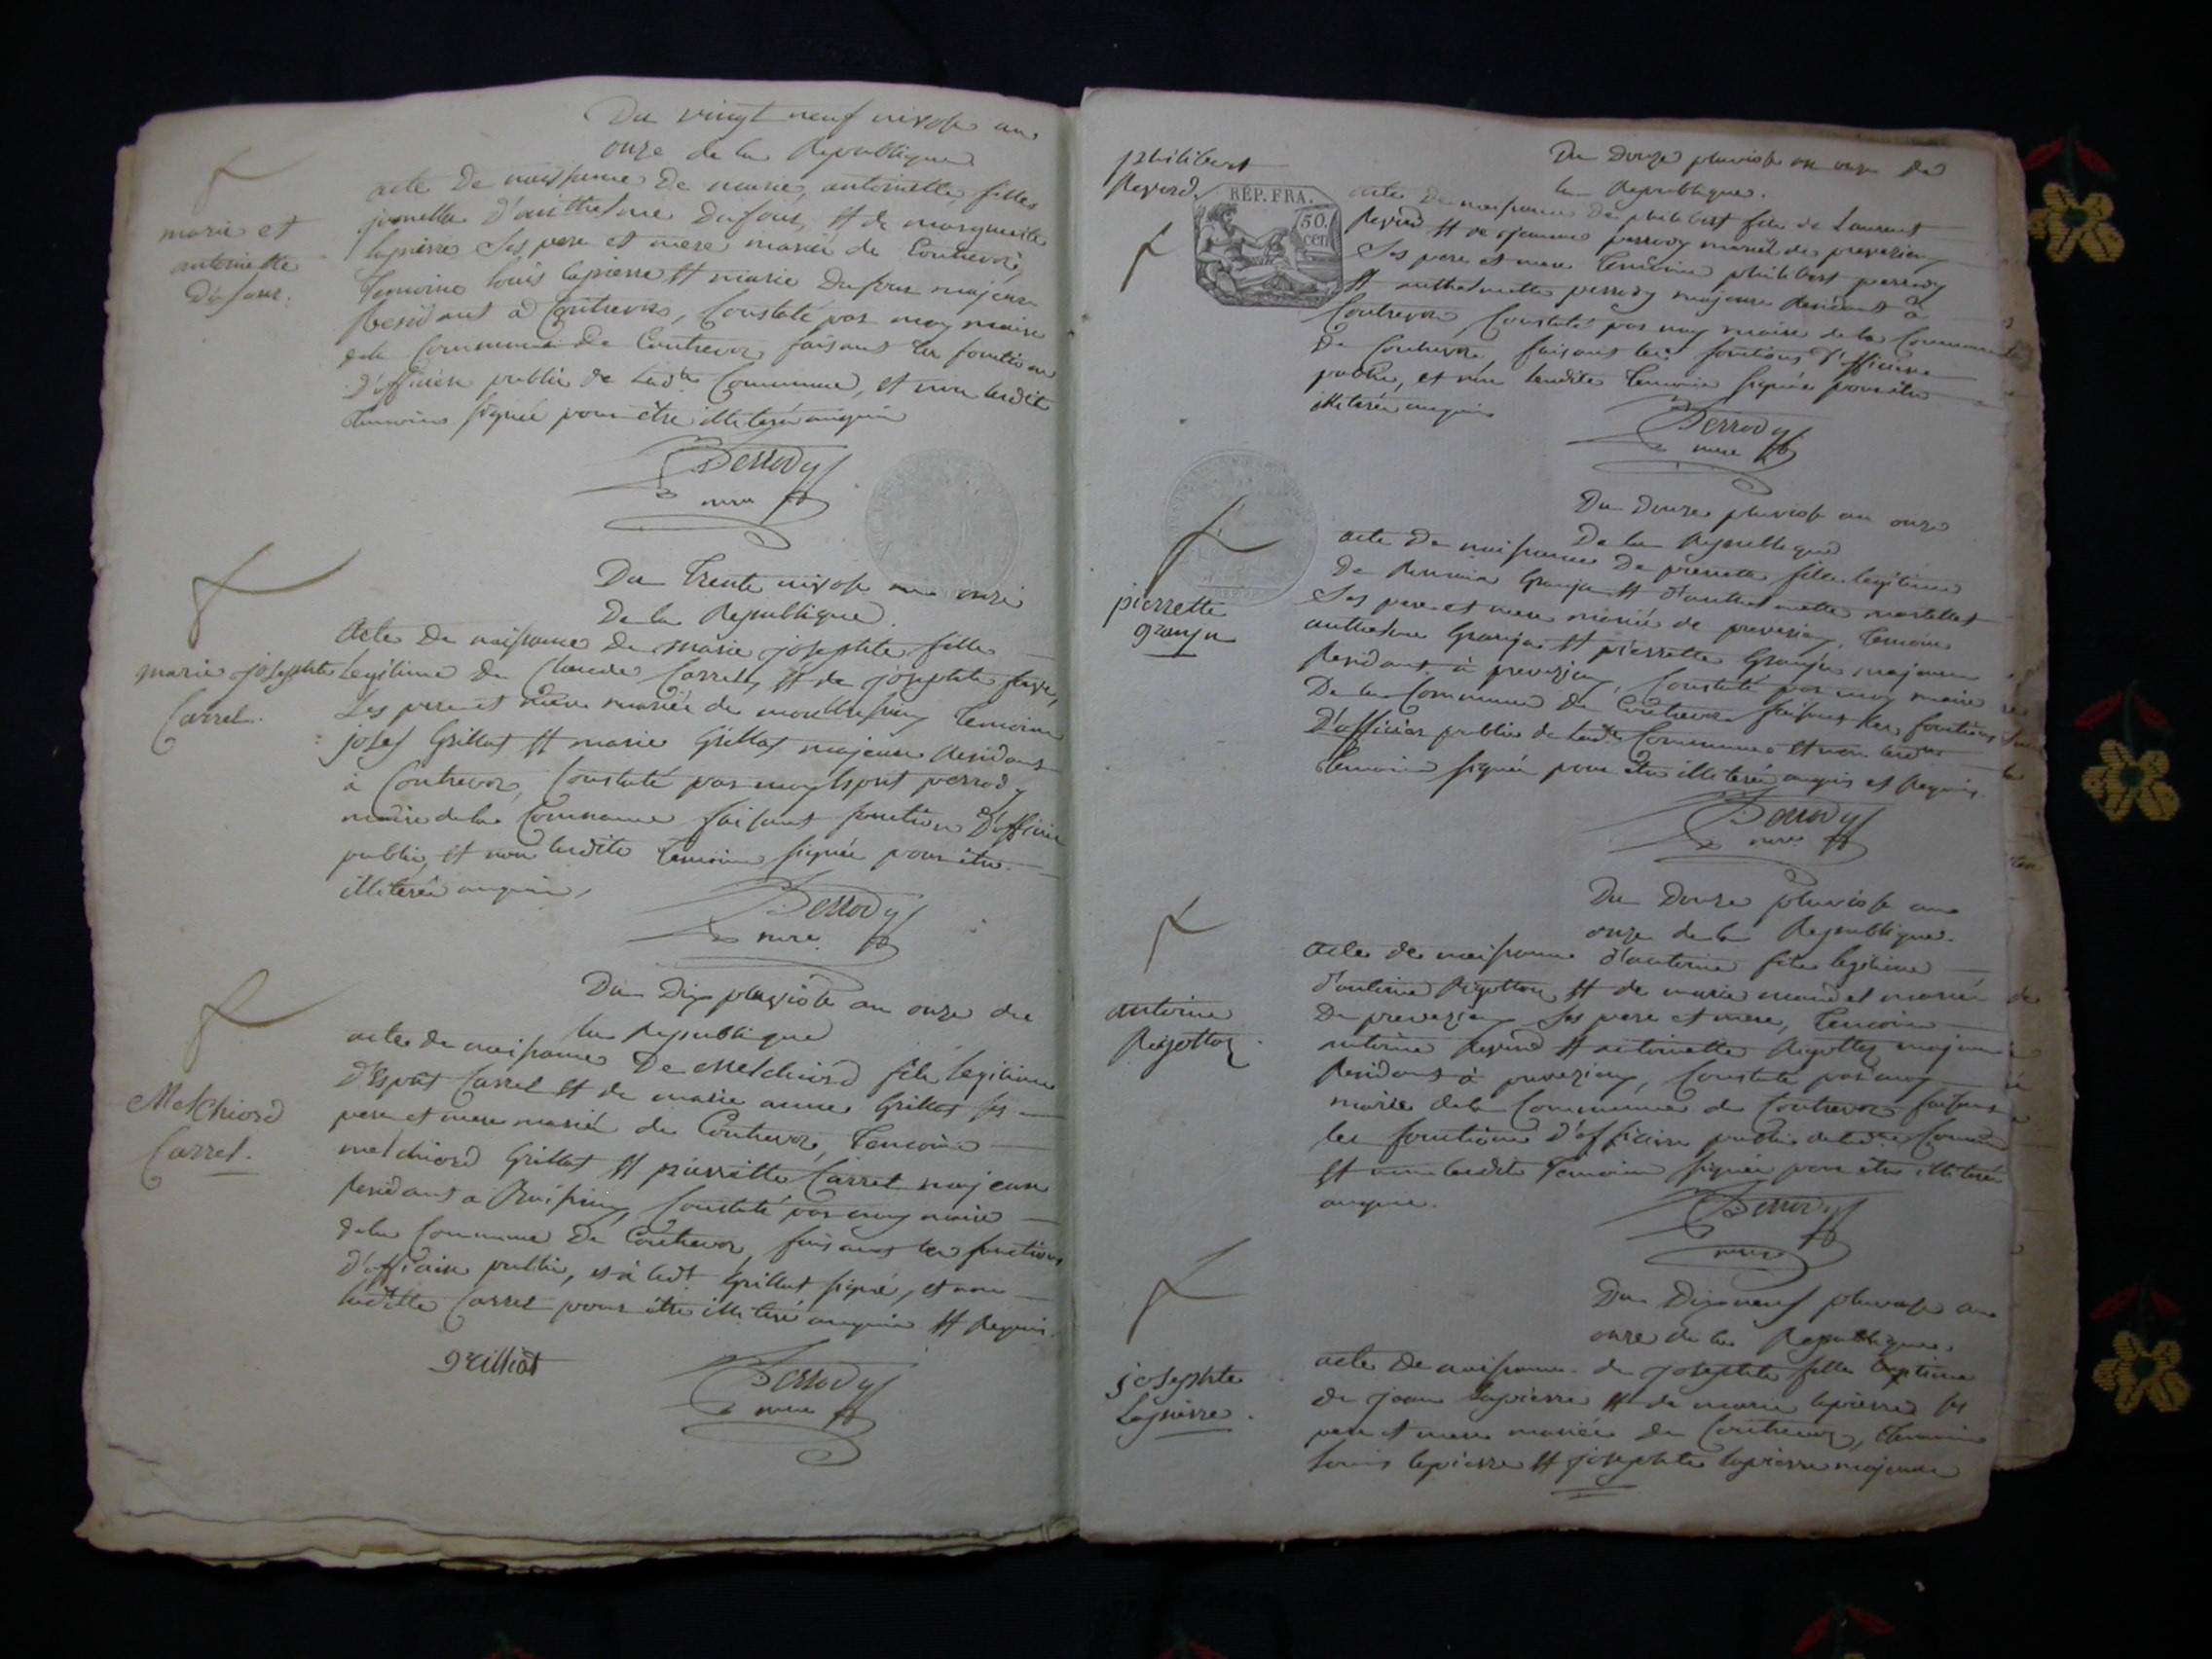 Du vingt neuf nivose an
onze de la Republique
marie et
antoinette
Dufour.
acte de naissance de marie, antoinette filles
jumelle d'anthelme Dufour, et de marguerite
lapierre Ses pere et mere mariés de Contrevoz,
temoins louis lapierre et marie Dufour majeurs
Residant a Contrevoz, Constaté par moy maire
de la Commune de Contrevoz faisant les fonctions
d'officier public de lad.te Commune, et non lesdits
temoins signés pour être illiterés enquis
Perrody
maire
Du trente nivose an onze
De la Republique.
marie josephte
Carrel.
Acte de naissance de marie josephte fille
legitime de Claude Carrel, et de josephte
Ses pere et mere mariés de temoins
josef Grillat et marie Grillat majeurs Residant
à Contrevoz, Constaté par moy Esprit perrody
maire de la Commune faisant fonction D'officier
public, et non lesdits temoins signés pour être
illiterés enquis,
Perrody
maire
Du Dix pluviose an onze de
la Republique
Melchiord
Carrel.
acte de naissance De Melchiord fils legitime
d'Esprit Carrel et de marie anne Grillat ses
pere et mere mariés de Contrevoz, temoins
melchiord Grillat et pierrette Carrel majeurs
Residant a Constaté par moy maire
de la Commune De Contrevoz, faisant les fonctions
d'officier public, et à ledt Grillat signé, et non
ladite Carrel pour être illiteré enquis et Requis.
Grilliat
Perrody
maire
philibert
Reverd
RÉP. FRA.
50
cen
Du Douze pluviose an onze de
la Republique.
acte De naissance De philibert fils de Laurent
et de jeanne perrody mariés de prevezieu
Ses pere et mere temoins philibert perrody
et anthelmette perrody majeurs Residant à
Contrevoz, Constaté par moy maire de la Commune
De Contrevoz, faisant les fonctions d'officier
public, et non lesdits temoins signés pour être
illiterés enquis
Perrody
maire
Du Douze pluviose an onze
De la Republique
pierrette
granju
acte De naissance De pierrette fille legitime
De et d'anthelmette martellet
Ses pere et mere mariés de prevezieu, temoins
anthelme Granju et pierrette Granju majeurs
Residant à prevezieu, Constaté par moy maire
De la Commune De Contrevoz faisant les fonctions
D'officier public de ladte Commune et non lesdits
temoins signés pour être illiterés enquis et Requis.
Perrody
maire
Du Douze pluviose an
onze de la Republique.
antoine
Rigottoz
acte de naissance d'antoine fils legitime
d'antoine Rigottoz et de marie mariés
De prevezieu Ses pere et mere, temoins
antoine et antoinette Rigottoz majeurs
Residant à prevezieu, Constaté par moy
maire de la Commune de Contrevoz faisant
les fonctions d'officier public de ladte Commune
et non lesdits temoins signés pour être illiterés
enquis.
Perrody
maire
Du Dix neuf pluviose an
onze de la Republique.
josephte
Lapierre.
acte De naissance de josephte fille legitime
de jean Lapierre et de marie lapierre ses
pere et mere mariés de Contrevoz, temoins
Louis lapierre et josephte lapierre majeurs